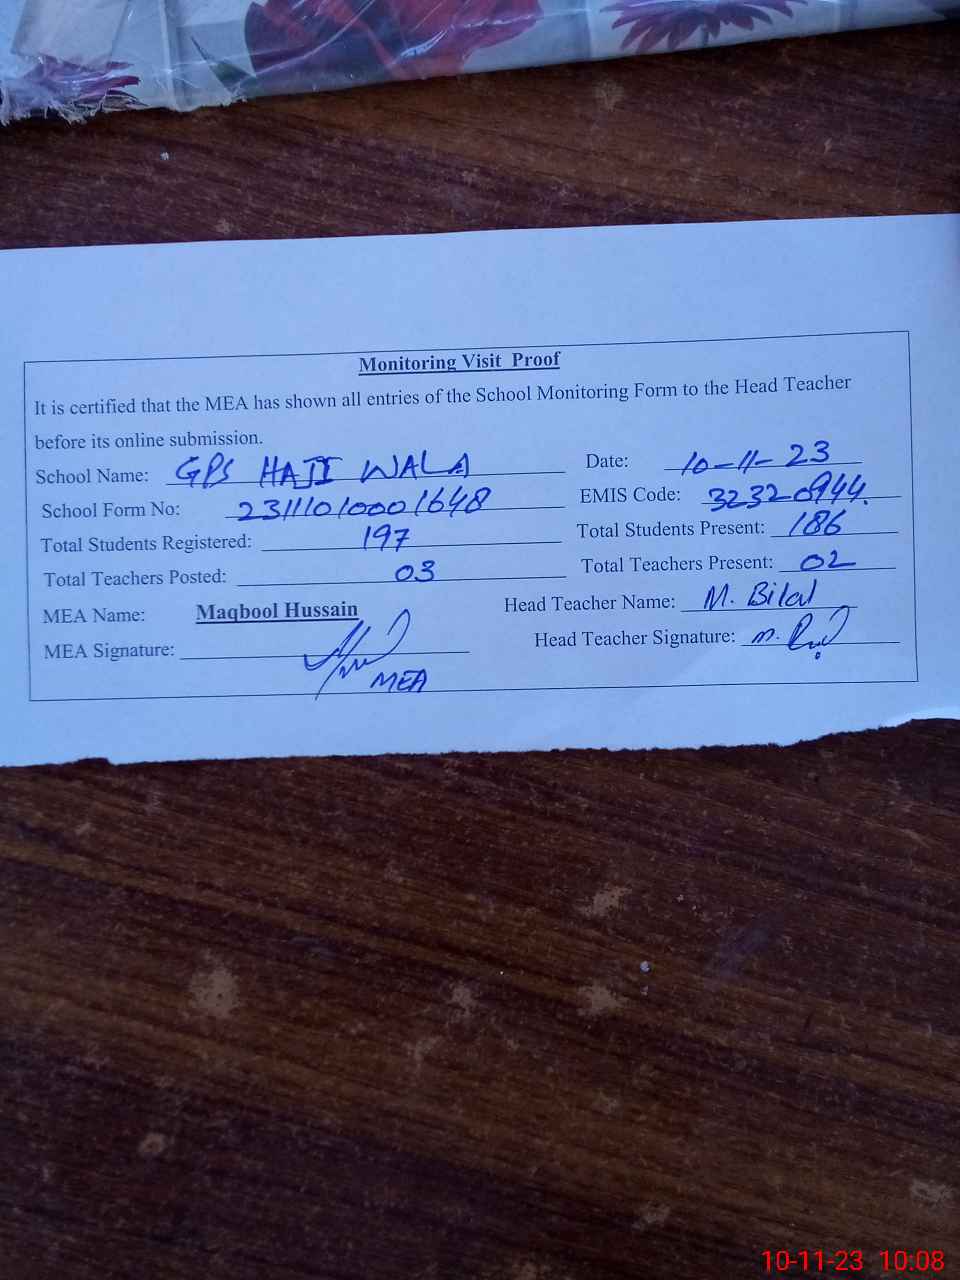 Monitoring Visit Proof
It is certified that the MEA has shown all entries of the School Monitoring Form to the Head Teacher
before its online submission.
School Name: GPS HAJI WALA Date: 10-11-23
School Form No: 23111010001648 EMIS Code: 32320944
Total Students Registered: 197 Total Students Present: 186
Total Teachers Posted: 03 Total Teachers Present: 02
MEA Name: Maqbool Hussain Head Teacher Name: M. Bilal
MEA Signature: Head Teacher Signature: M.
MEA
10-11-23 10:08